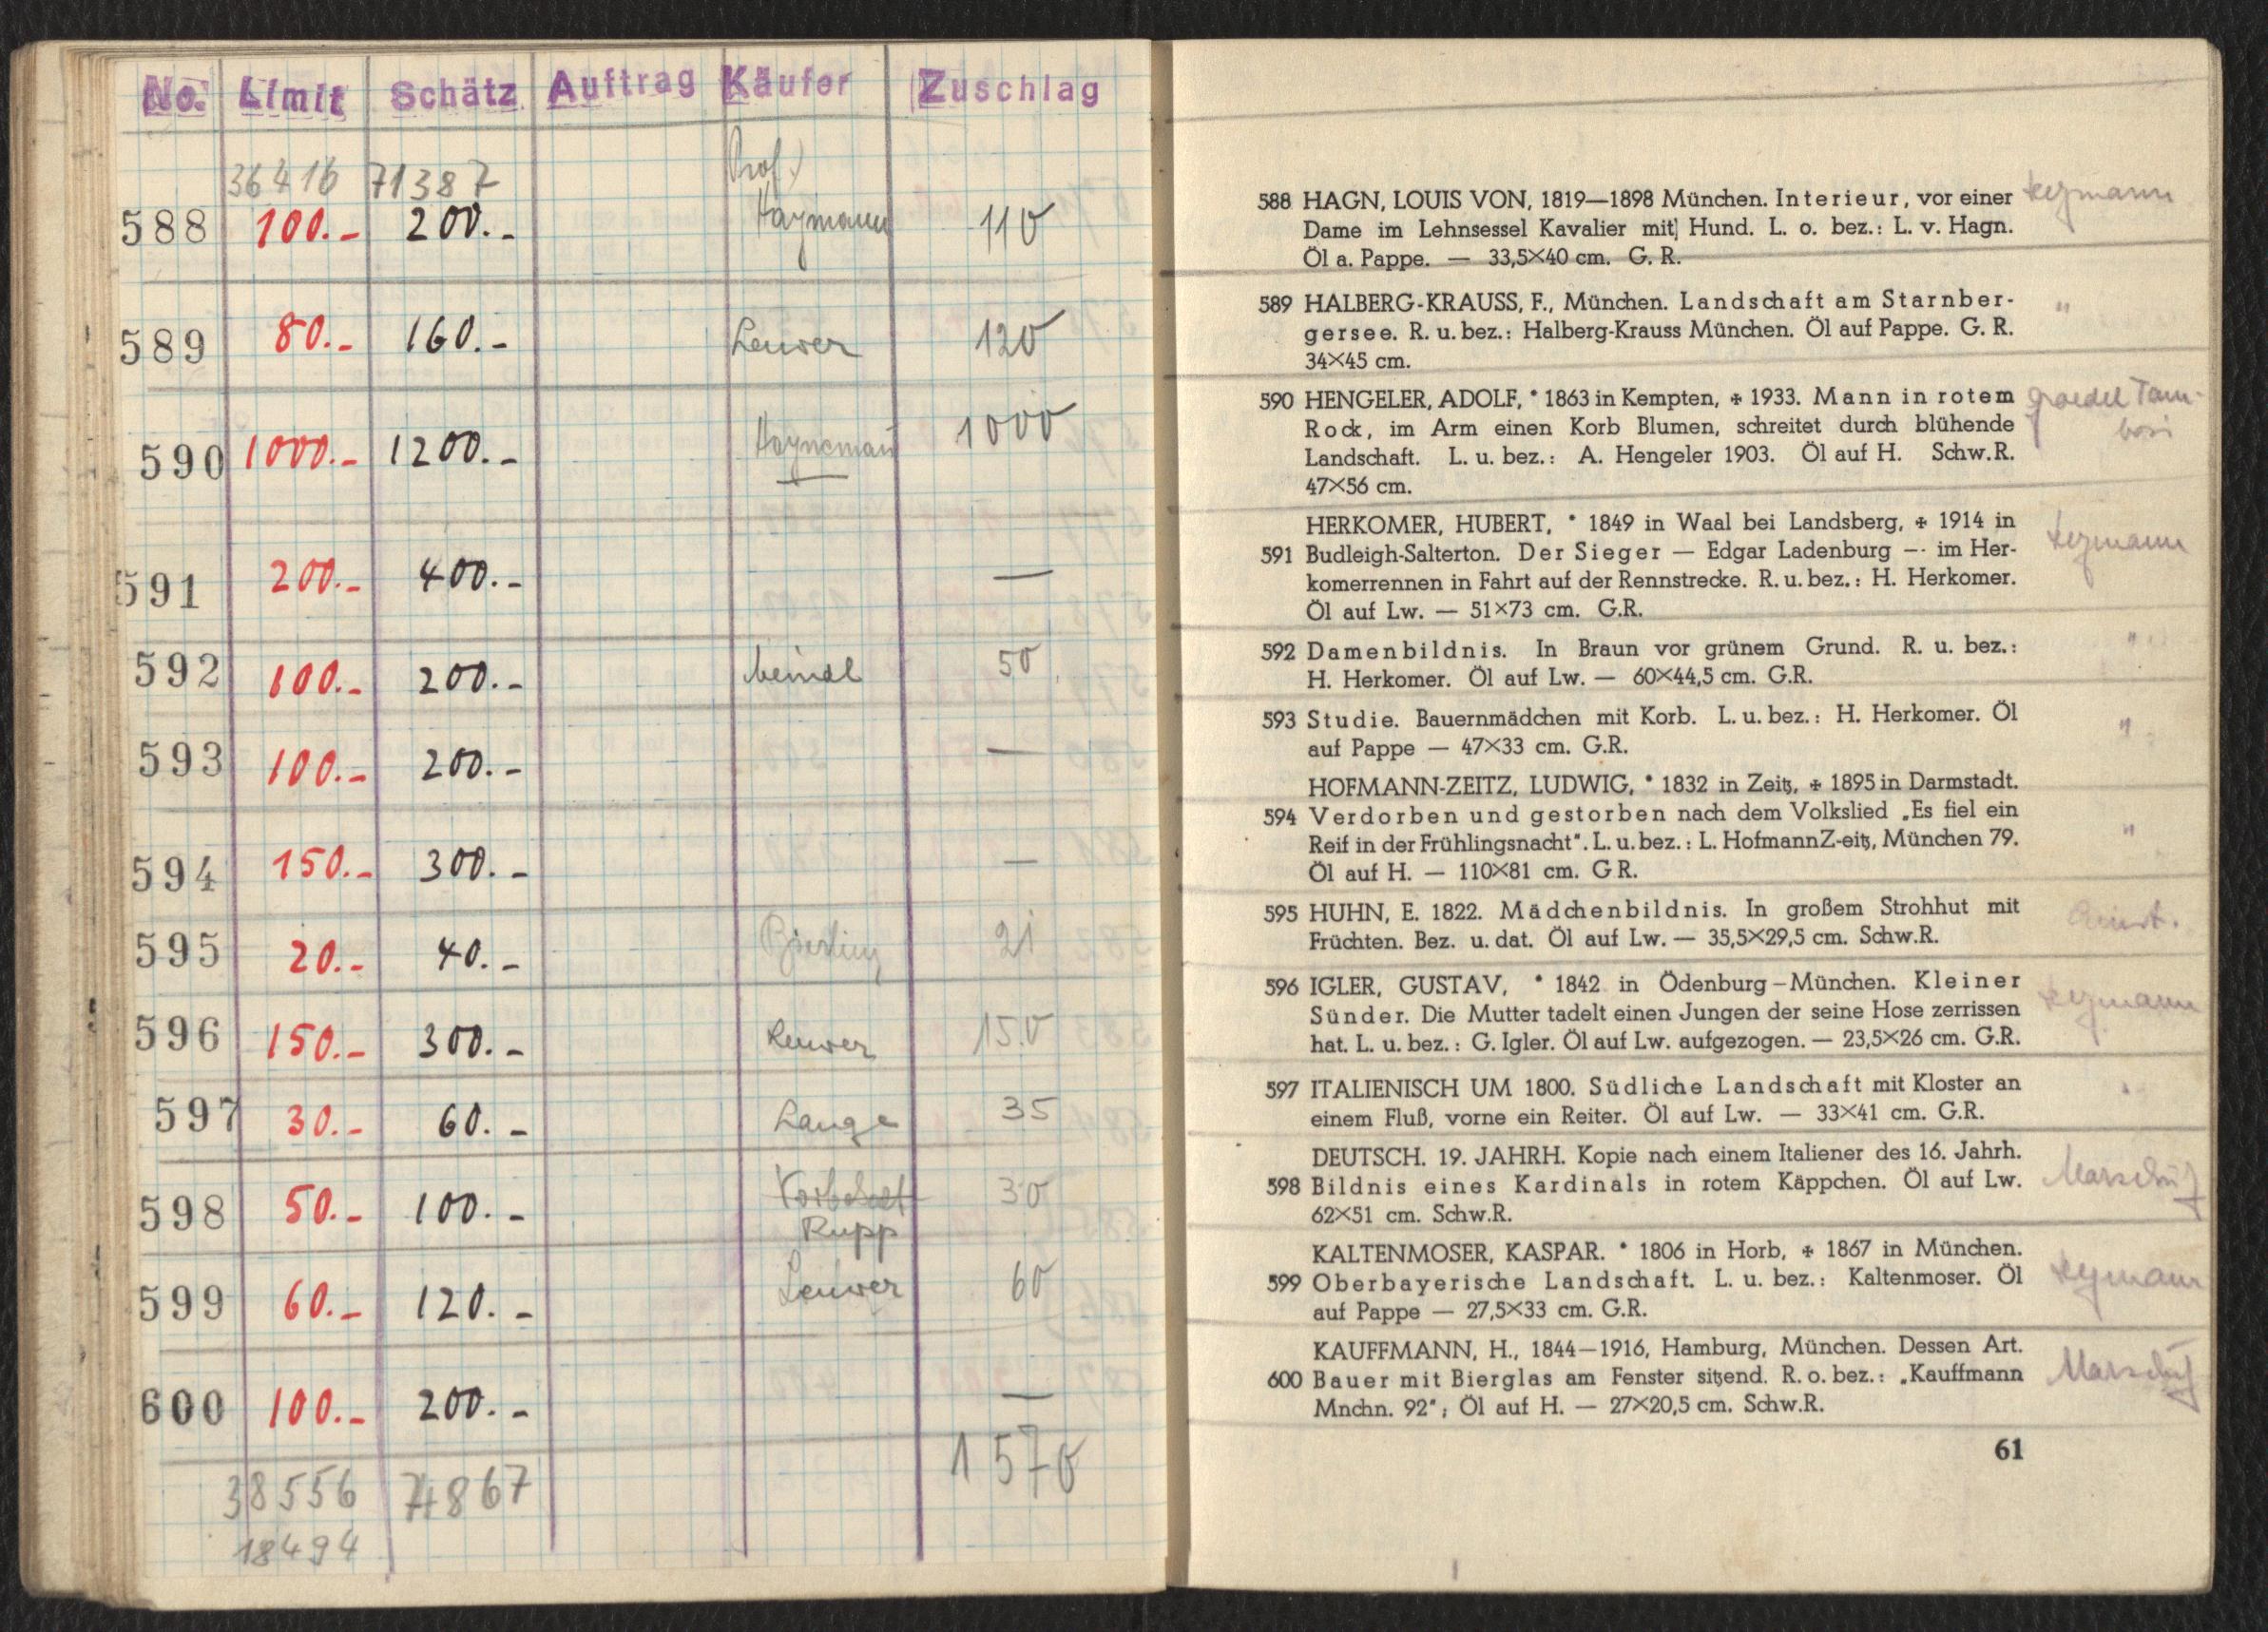 No. Limit Schätz Auftrag Käufer Zuschlag
36416 71387
588 100.- 200.- Prof. Haymann 110
589 80.- 160.- Leuwer 120
590 1000.- 1200.- Hayneman 1000
591 200.- 400.- —
592 100.- 200.- Meindl 50
593 100.- 200.- —
594 150.- 300.- —
595 20.- 40.- 21
596 150.- 300.- Leuwer 150
597 30.- 60.- Lange 35
598 50.- 100.- 30
Rupp
599 60.- 120.- Leuwer 60
600 100.- 200.- —
38556 74867 1570
18494
588 HAGN, LOUIS VON, 1819—1898 München. Interieur, vor einer
Dame im Lehnsessel Kavalier mit Hund. L. o. bez.: L. v. Hagn.
Öl a. Pappe. — 33,5×40 cm. G. R.
589 HALBERG-KRAUSS, F., München. Landschaft am Starnber-
gersee. R. u. bez.: Halberg-Krauss München. Öl auf Pappe. G. R.
34×45 cm.
"
590 HENGELER, ADOLF, * 1863 in Kempten, ✠ 1933. Mann in rotem
Rock, im Arm einen Korb Blumen, schreitet durch blühende
Landschaft. L. u. bez.: A. Hengeler 1903. Öl auf H. Schw.R.
47×56 cm.
HERKOMER, HUBERT, * 1849 in Waal bei Landsberg, ✠ 1914 in
591 Budleigh-Salterton. Der Sieger — Edgar Ladenburg — im Her-
komerrennen in Fahrt auf der Rennstrecke. R. u. bez.: H. Herkomer.
Öl auf Lw. — 51×73 cm. G.R.
592 Damenbildnis. In Braun vor grünem Grund. R. u. bez.:
H. Herkomer. Öl auf Lw. — 60×44,5 cm. G.R.
"
593 Studie. Bauernmädchen mit Korb. L. u. bez.: H. Herkomer. Öl
auf Pappe — 47×33 cm. G.R.
"
HOFMANN-ZEITZ, LUDWIG, * 1832 in Zeitz, ✠ 1895 in Darmstadt.
594 Verdorben und gestorben nach dem Volkslied „Es fiel ein
Reif in der Frühlingsnacht". L. u. bez.: L. HofmannZ-eitz, München 79.
Öl auf H. — 110×81 cm. G R.
"
595 HUHN, E. 1822. Mädchenbildnis. In großem Strohhut mit
Früchten. Bez. u. dat. Öl auf Lw. — 35,5×29,5 cm. Schw.R.
596 IGLER, GUSTAV, * 1842 in Ödenburg–München. Kleiner
Sünder. Die Mutter tadelt einen Jungen der seine Hose zerrissen
hat. L. u. bez.: G. Igler. Öl auf Lw. aufgezogen. — 23,5×26 cm. G.R.
597 ITALIENISCH UM 1800. Südliche Landschaft mit Kloster an
einem Fluß, vorne ein Reiter. Öl auf Lw. — 33×41 cm. G.R.
DEUTSCH. 19. JAHRH. Kopie nach einem Italiener des 16. Jahrh.
598 Bildnis eines Kardinals in rotem Käppchen. Öl auf Lw.
62×51 cm. Schw.R.
KALTENMOSER, KASPAR. * 1806 in Horb, ✠ 1867 in München.
599 Oberbayerische Landschaft. L. u. bez.: Kaltenmoser. Öl
auf Pappe — 27,5×33 cm. G.R.
KAUFFMANN, H., 1844—1916, Hamburg, München. Dessen Art.
600 Bauer mit Bierglas am Fenster sitzend. R. o. bez.: „Kauffmann
Mnchn. 92"; Öl auf H. — 27×20,5 cm. Schw.R.
61